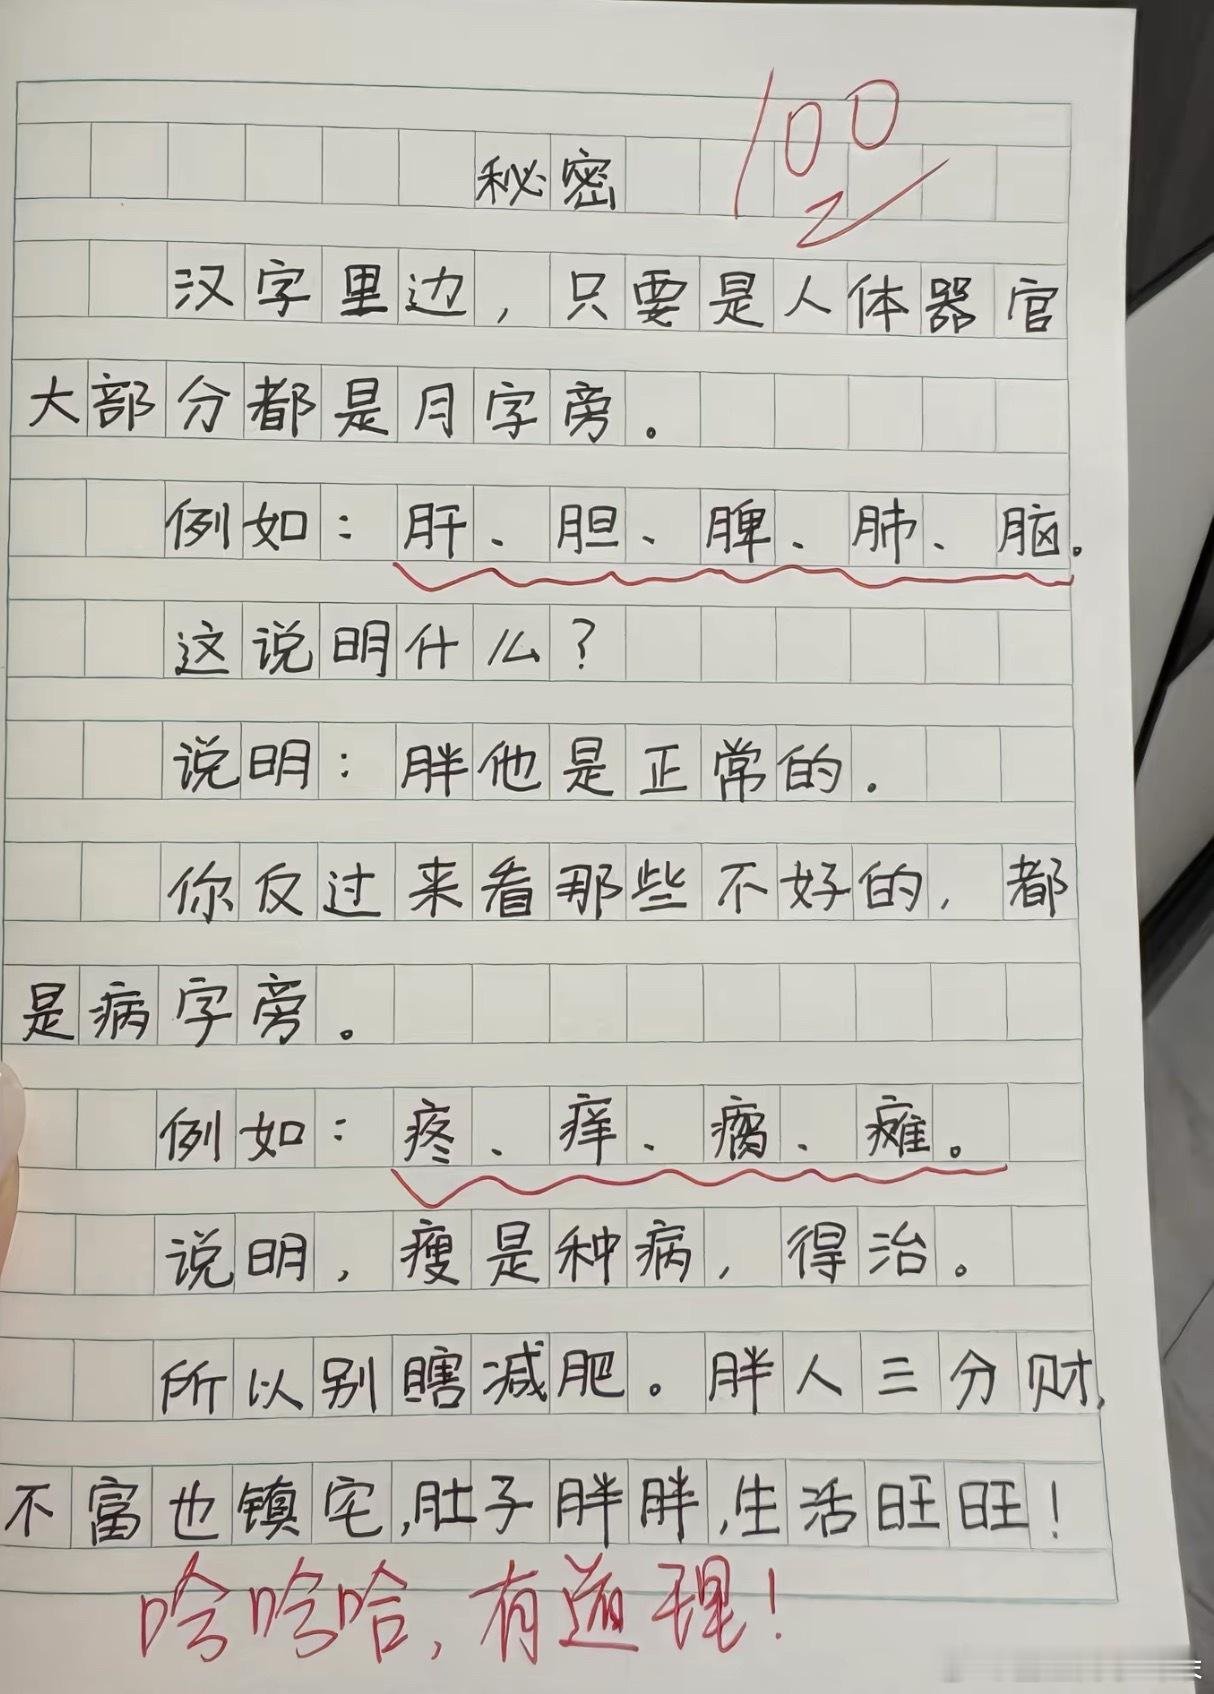 100
秘密
汉字里边，只要是人体器官
大部分都是月字旁。
例如：肝、胆、脾、肺、脑。
这说明什么？
说明：胖他是正常的.
你反过来看那些不好的，都
是病字旁。
例如：疼、痒、瘸、瘫。
说明，瘦是种病，得治。
所以别瞎减肥。胖人三分财,
不富也镇宅,肚子胖胖,生活旺旺！
哈哈哈,有道理！